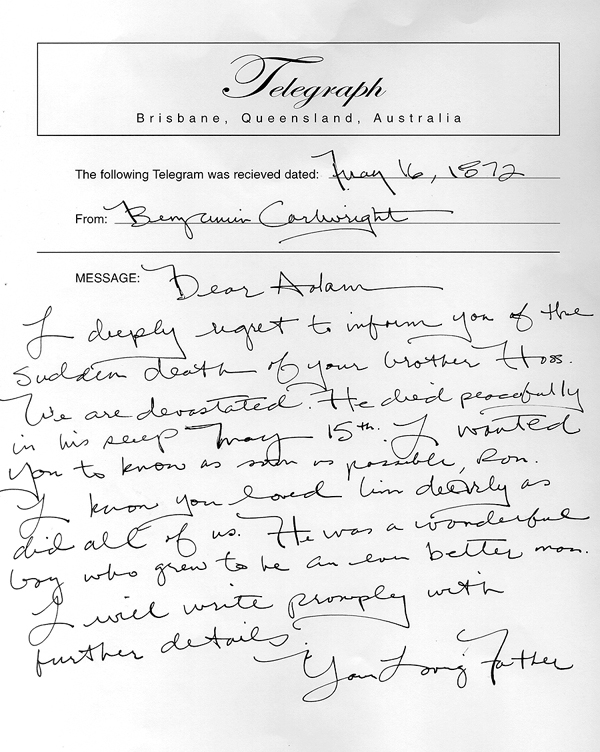 Telegraph
Brisbane, Queensland, Australia
The following Telegram was recieved dated: May 16, 1872
From: Benjamin Cartwright
MESSAGE: Dear Adam
I deeply regret to inform you of the
sudden death of your brother Hoss.
We are devastated. He died peacefully
in his seep May 15th. I wanted
you to know as soon as possible, son.
I know you loved him dearly as
did all of us. He was a wonderful
boy who grew to be an even better man.
I will write promply with
further details.
Your Loving Father